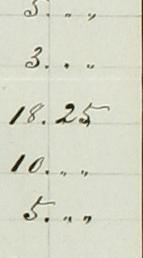 5. „ „
3. „ „
18. 25
10. „ „
5. „ „